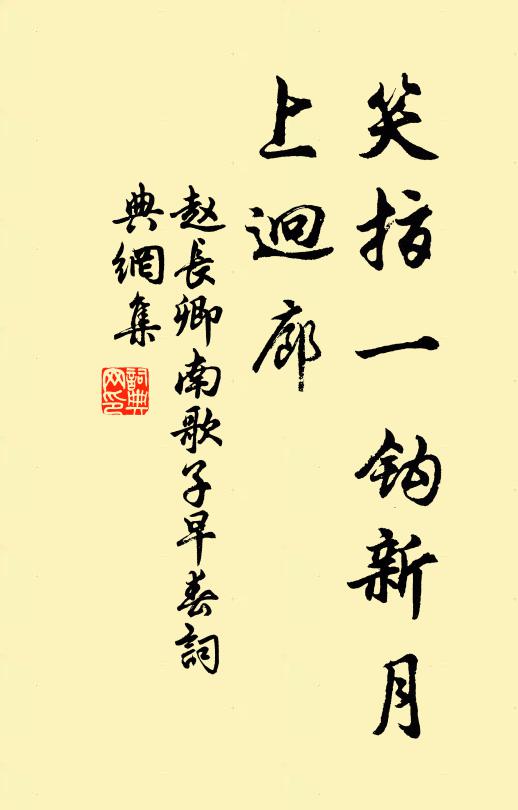 笑指一鈎新月
上迴廊
赵長卿南歌子早春詞
典網集
詞典网印